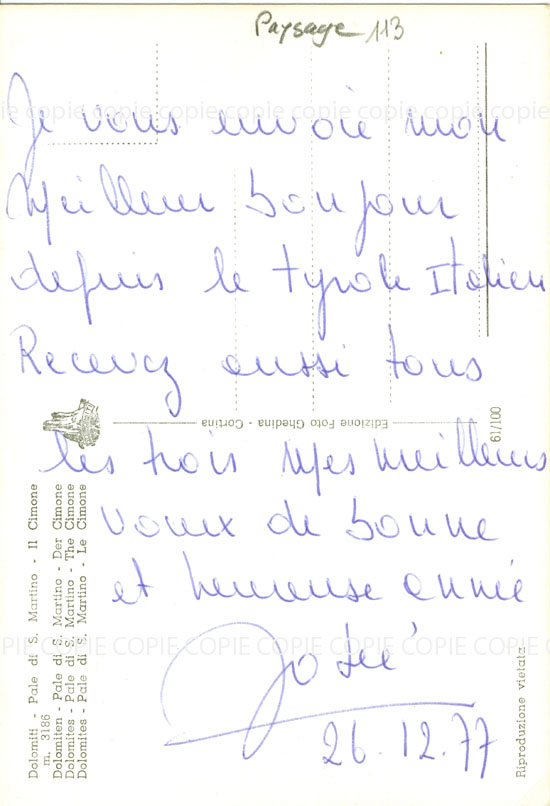 Paysage 113
Je vous envoie mon
meilleur bonjour
depuis le tyrole Italien
Recevez aussi tous
les trois mes meilleurs
voeux de bonne
et heureuse année
José
26.12.77
Edizione Foto Ghedina - Cortina
61/100
Dolomiti - Pale di S. Martino - Il Cimone
m. 3186
Dolomiten - Pale di S. Martino - Der Cimone
Dolomites - Pale di S. Martino - The Cimone
Dolomites - Pale di S. Martino - Le Cimone
Riproduzione vietata
COPIE COPIE COPIE COPIE COPIE COPIE COPIE
COPIE COPIE COPIE COPIE COPIE COPIE COPIE